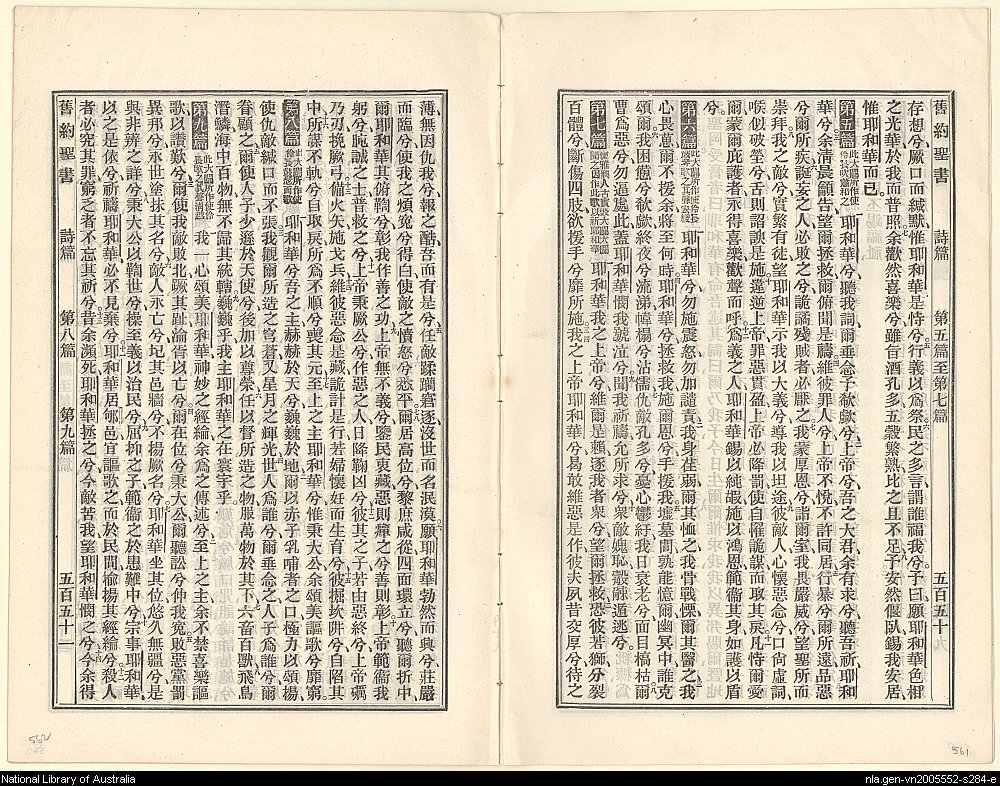 舊約聖書 詩篇 第五篇至第七篇 五百五十
存想兮厥口而緘默惟耶和華是恃兮行義以爲祭民之多言謂誰福我兮予曰願耶和華色相
之光華於我而普照余歡然喜樂兮雖旨酒孔多五穀繁熟比之且不足予安然偃臥錫我安居
惟耶和華而已
第五篇 耶和華兮聽我詞爾垂念予欷歔兮上帝兮吾之大君余有求兮聽吾祈耶和
華兮余清晨籲告望爾拯救爾俯聞是禱維彼罪人兮上帝不悅不許同居行暴兮爾所遠品惡
兮爾所疾誕妄之人必敗之兮詭譎殘賊者必厭之我蒙厚恩兮詣爾室我畏嚴威兮望聖所而
崇拜我之敵兮實繁有徒望耶和華示我以大義兮導我以坦途彼敵人心懷惡念兮口尚虛詞
喉似破塋兮舌則諂諛是施違逆上帝罪惡貫盈上帝必降罰使自罹詭謀而取其戾凡恃爾愛
爾蒙爾庇護者永得喜樂歡聲而呼爲義之人耶和華錫以純嘏施以鴻恩範衞其身如護以盾
兮
第六篇 耶和華兮勿施震怒勿加譴責我身荏弱爾其恤之我骨戰慄爾其醫之我
心畏葸爾不援余將至何時耶和華兮拯救我施厥恩兮手援我墟墓間孰能憶爾幽冥中誰克
頌爾我困憊兮欷歔終夜兮流涕幃榻兮沾濡仇敵孔多兮憂心鬱紆我日衰老兮面目槁枯爾
曹爲惡兮勿逼處此蓋耶和華憫我號泣兮聞我祈禱允所求兮衆敵媿恥觳觫遁逃兮
第七篇 耶和華我之上帝兮維爾是賴逐我者衆兮望爾拯救恐彼若獅兮分裂
百體兮斷傷四肢欲援手兮靡所施我之上帝耶和華兮曷敢維惡是作彼夫夙昔交厚兮待之
薄無因仇我兮報之酷吾而有是兮任敵蹂躪窘逐沒世而名泯漠願耶和華勃然而興兮莊嚴
而臨兮使我之煩寃兮得白使敵之憤怒兮悉平爾居高位兮黎庶咸從四面環立兮聽爾折中
爾耶和華其俯鞫兮彰我作善之功上帝無不義兮鑒民衷藏惡則癉之兮善則彰上帝範衞我
躬兮肫誠之士普救之兮上帝秉厥公兮作惡之人日降鞠凶兮彼其之子若由惡終兮上帝礪
乃刃挽厥弓備火矢施戈兵維彼惡念是藏詭計是行若婦懷妊而生育兮彼掘坎阱兮自陷其
中所謀不軌兮自取戾所爲不順兮喪其元至上之主耶和華兮惟秉大公余頌美謳歌兮靡窮
第八篇 耶和華兮吾之主赫赫於天兮巍巍於地爾以赤子乳哺者之口極力以頌揚
使仇敵緘口而不張我觀爾所造之穹蒼又星月之輝光世人爲誰兮爾垂念之人子爲誰兮爾
眷顧之爾使人子少遜於天使兮後加以尊榮任以督所造之物服萬物於其下六畜百獸飛鳥
潛鱗海中百物無不歸其統轄巍巍乎我主耶和華之在寰宇乎
第九篇 我一心頌美耶和華神妙之經綸余爲之傳述兮至上之主余不禁喜樂謳
歌以讚歎兮爾使我敵敗北蹶其趾淪胥以亡兮爾在位兮秉大公爾聽訟兮伸我寃敗惡黨罰
異邦兮永世塗抹其名兮敵人永亡兮圮其邑牆兮不揚厥名兮耶和華坐其位悠久無疆兮是
與非辨之詳兮秉大公以鞫世兮操至義以治民兮屈抑之子範衞之於患難中兮宗事耶和華
以之是依兮祈禱耶和華必不見棄兮耶和華居郇邑宜謳歌之而於民間揄揚其經綸兮殺人
者必究其罪窮乏者不忘其祈兮昔余瀕死耶和華拯之兮今敵苦我望耶和華憫之兮今余得
舊約聖書 詩篇 第八篇 第九篇 五百五十一
561
562
National Library of Australia
nla.gen-vn2005552-s284-e